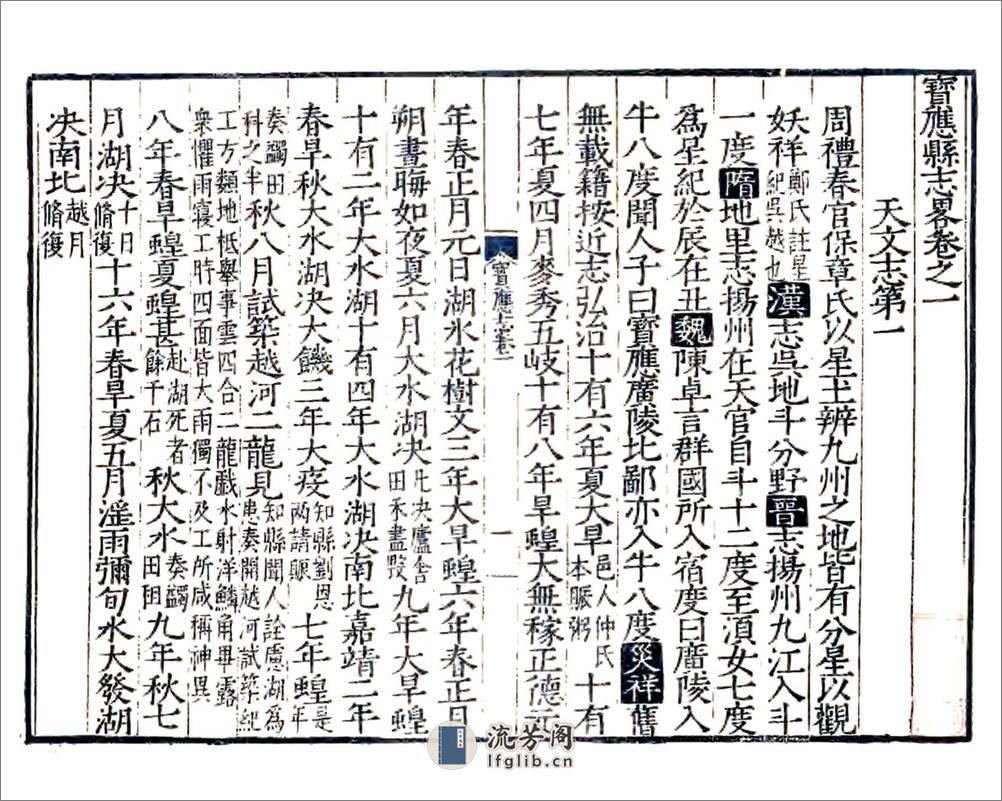 寶應縣志畧卷之一
天文志第一
周禮春官保章氏以星土辨九州之地皆有分星以觀
妖祥鄭氏註星紀吳越也漢志吳地斗分野晉志揚州九江入斗
一度隋地里志揚州在天官自斗十二度至須女七度
爲星紀於辰在丑魏陳卓言群國所入宿度曰廣陵入
牛八度聞人子曰寶應廣陵比鄙亦入牛八度災祥舊
無載籍按近志弘治十有六年夏大旱邑人仲氏本賑粥十有
七年夏四月麥秀五岐十有八年旱蝗大無稼正德元
寶應志卷一
一
年春正月元日湖氷花樹文三年大旱蝗六年春正月
朔晝晦如夜夏六月大水湖决凡决廬舍田禾盡没九年大旱蝗
十有二年大水湖十有四年大水湖决南北嘉靖二年
春旱秋大水湖决大饑三年大疫知縣劉恩兩請賑七年蝗是年
奏蠲田科之半秋八月試築越河二龍見知縣聞人詮慮湖爲患奏開越河試築紀
工方類地柢舉事雲四合二龍戲水射洋鱗角畢露
衆懼雨寖工時四面皆大雨獨不及工所咸稱神異
八年春旱蝗夏蝗甚赴湖死者餘千石秋大水奏蠲田租九年秋七
月湖决十月脩復十六年春旱夏五月滛雨彌旬水大發湖
决南北越月脩復
流芳阁
lfglib.cn